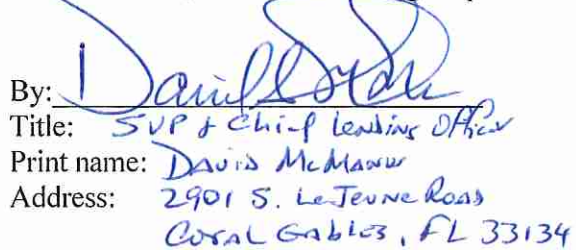 By:
Title: SVP & Chief Lending Officer
Print name: David McManus
Address: 2901 S. LeJeune Road
Coral Gables, FL 33134